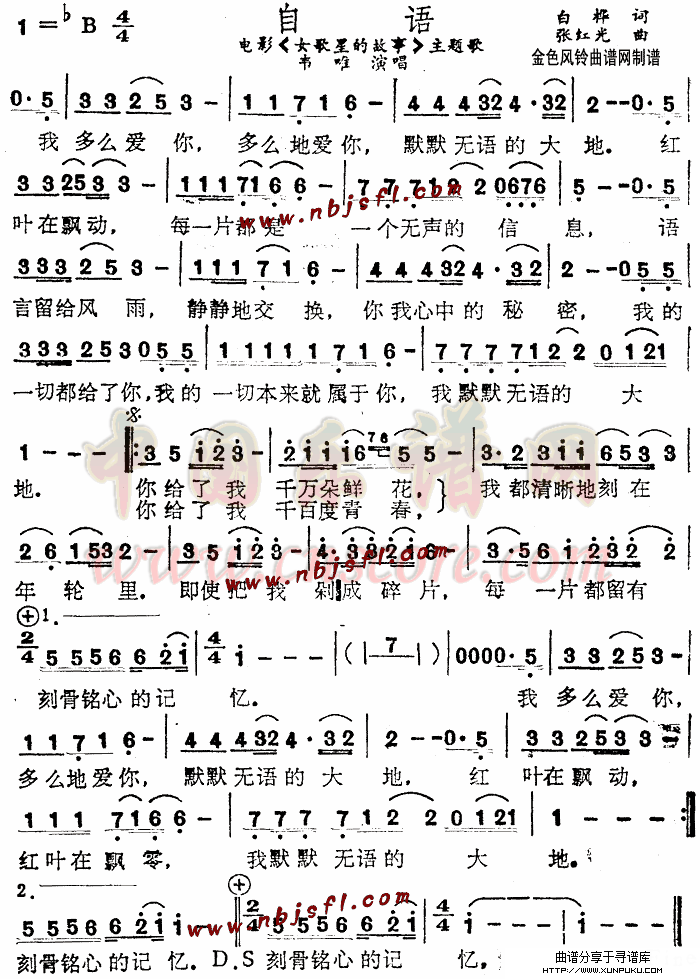 自 语
1=♭B 4/4
白桦 词
张红光 曲
电影《女歌星的故事》主题歌
韦唯 演唱
金色风铃曲谱网制谱
0·5 | 3 3 2 5 3 - | 1 1 7 1 6 - | 4 4 4 32 4·32 | 2 - - 0·5 |
我 多么爱 你, 多么地爱你, 默默无语的大 地. 红
3 3 25 3 3 - | 1 1 1 71 6 6 | 7 7 7 71 2 2 0676 | 5 - - 0·5 |
叶在飘动, 每一片都是 一个无声的 信 息, 语
www.nbjsfl.com
3 3 3 2 5 3 - | 1 1 1 7 1 6 - | 4 4 4 324·32 | 2 - - 0 5 5 |
言留给风 雨, 静静地交 换, 你我心中的 秘 密, 我的
3 3 3 2 5 3 0 5 5 | 1 1 1 1 1 7 1 6 - | 7 7 7 7 1 2 2 0 121 |
一切都给了你,我的 一切本来就属于你, 我默默无语的 大
1 - - - 3 5 i 2 3 - | 2 i i i i 6 76 5 5 - | 3· 2 3 i i 6 5 3 5 |
地. 你给了我 千万朵鲜 花,} 我 都清晰地刻在
你给了我 千百度青 春,}
中国曲谱网
2 6 1 53 2 - | 3 5 i 2 3 - | 4·3 2 2 i 6 - | 3·5 6 i 2 3 2 2 |
年 轮 里. 即使把 我 剁成 碎 片, 每 一片都留有
www.nbjsfl.com
1.
2/4 5 5 5 6 6 2 i | 4/4 i - - - | (|— 7 —|) | 0000·5 | 3 3 2 5 3 - |
刻骨铭心的记 忆. 我 多么爱 你,
1 1 7 1 6 - | 4 4 4 32 4·32 | 2 - - 0·5 | 3 3 2 5 3 3 - |
多么地爱你, 默默无语的大 地, 红 叶在飘动,
1 1 1 71 6 6 - | 7 7 7 7 1 2 2 0 121 | 1 - - - :|
红叶在飘零, 我默默 无语的 大 地.
2.
www.nbjsfl.com
5 5 5 6 6 2 i i - - | 2/4 5 5 5 6 6 2 i | 4/4 i - - - | i - - - |
刻骨铭心的记 忆. D.S 刻骨铭心的记 忆.
曲谱分享于寻谱库
WWW.XUNPUKU.COM